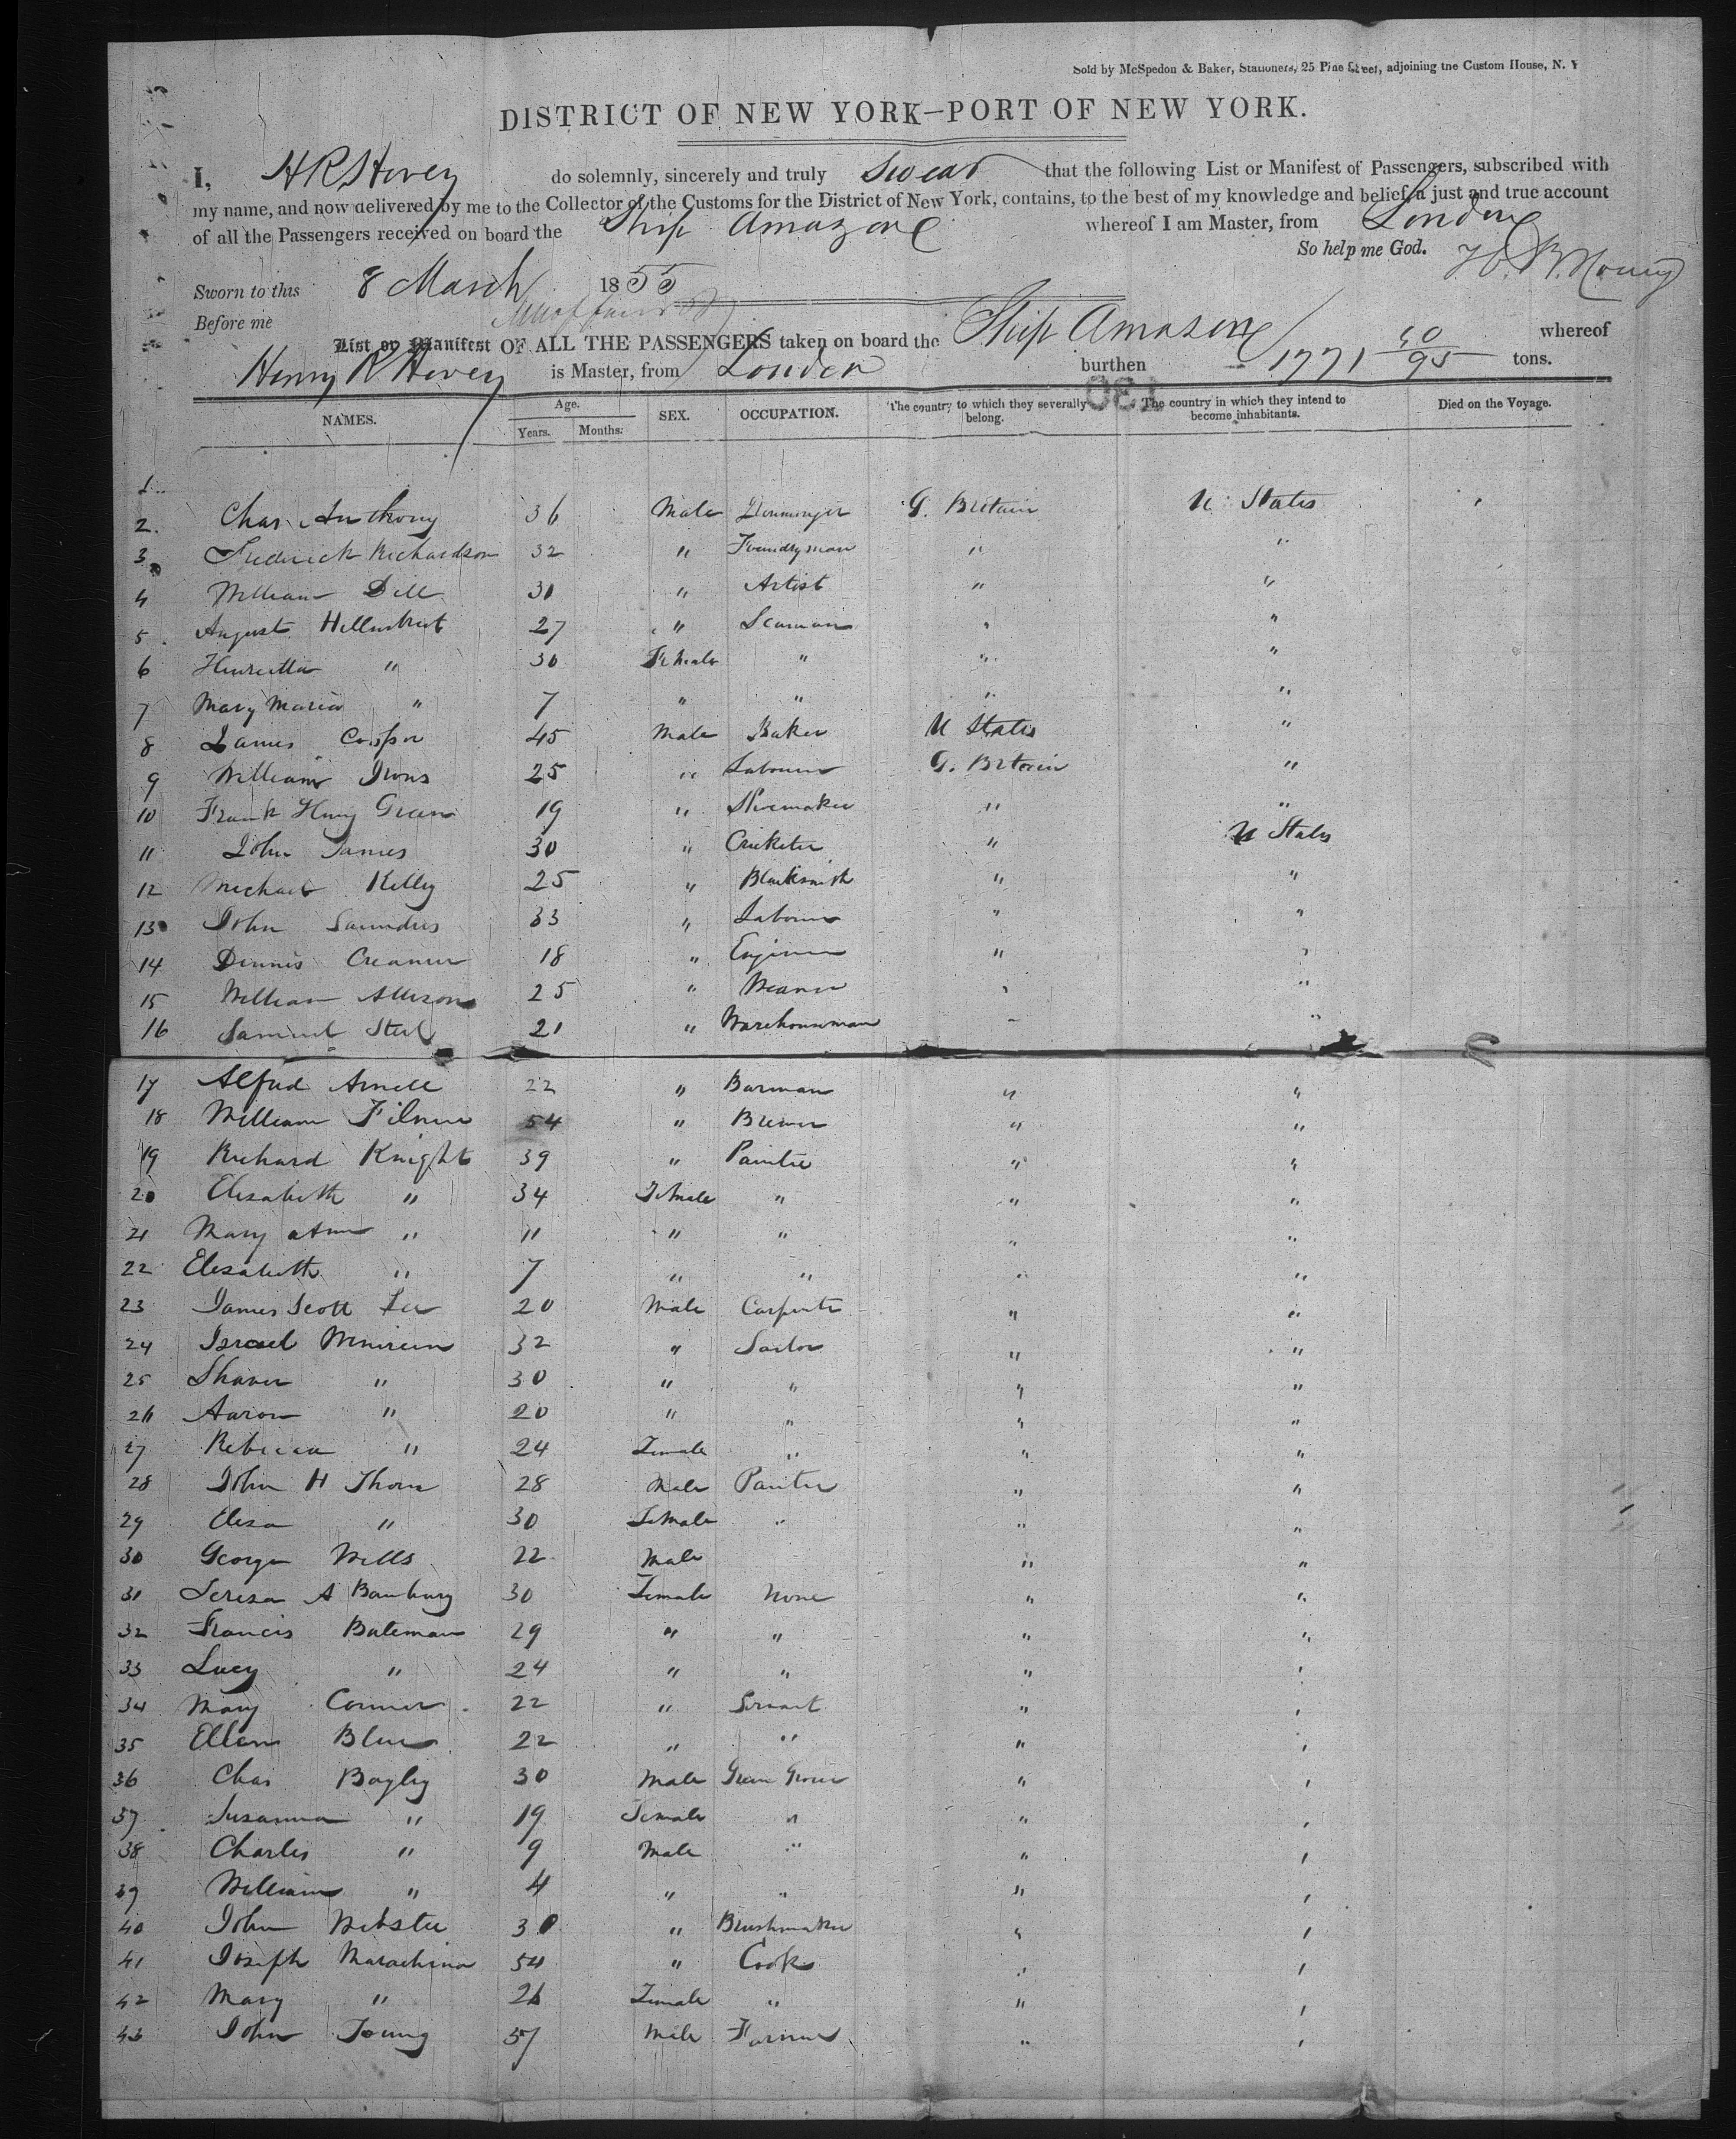 Sold by McSpedon & Baker, Stationers, 25 Pine Street, adjoining the Custom House, N. Y
DISTRICT OF NEW YORK—PORT OF NEW YORK.
I, H R Hovey do solemnly, sincerely and truly Swear that the following List or Manifest of Passengers, subscribed with
my name, and now delivered by me to the Collector of the Customs for the District of New York, contains, to the best of my knowledge and belief, a just and true account
of all the Passengers received on board the Ship Amazon whereof I am Master, from London
So help me God.
Sworn to this 8 March 1855
Before me
List or Manifest OF ALL THE PASSENGERS taken on board the Ship Amazon whereof
Henry R Hovey is Master, from London burthen 1771 50/95 tons.
NAMES. Age. Years. Months. SEX. OCCUPATION. The country to which they severally belong. The country in which they intend to become inhabitants. Died on the Voyage.
1
2. Chas Anthony 36 Male G. Britain U. States
3 Frederick Richardson 32 " Foundryman " "
4 William Dell 30 " Artist " "
5 August 27 " Seaman " "
6 Henrietta " 30 Female " " "
7 Mary Maria " 7 " " " "
8 James Cooper 45 Male Baker U States "
9 William Irons 25 " Labourer G. Britain "
10 Frank Henry Green 19 " Shoemaker " "
11 John James 30 " Cricketer " U States
12 Michael Kelly 25 " Blacksmith " "
13 John Saunders 33 " Labourer " "
14 Dennis Creamer 18 " Engineer " "
15 William Allison 25 " Weaver " "
16 Samuel Steel 21 " Warehouseman " "
17 Alfred Arnell 22 " Barman " "
18 William Filmer 54 " Brewer " "
19 Richard Knight 39 " Painter " "
20 Elizabeth " 34 Female " " "
21 Mary Ann " 11 " " " "
22 Elizabeth " 7 " " " "
23 James Scott Lee 20 Male Carpenter " "
24 Israel 32 " Sailor " "
25 " 30 " " " "
26 Aaron " 20 " " " "
27 Rebecca " 24 Female " " "
28 John H Thorn 28 Male Painter " "
29 Eliza " 30 Female " " "
30 George Wells 22 Male " "
31 Teresa A Banbury 30 Female None " "
32 Francis Bateman 29 " " " "
33 Lucy " 24 " " " "
34 Mary Connor 22 " Servant " "
35 Ellen 22 " " " "
36 Chas Bagley 30 Male Green Grocer " "
37 Susanna " 19 Female " " "
38 Charles " 9 Male " " "
39 William " 4 " " " "
40 John Webster 30 " Brushmaker " "
41 Joseph 54 " Cook " "
42 Mary " 26 Female " " "
43 John Young 57 Male Farmer " "